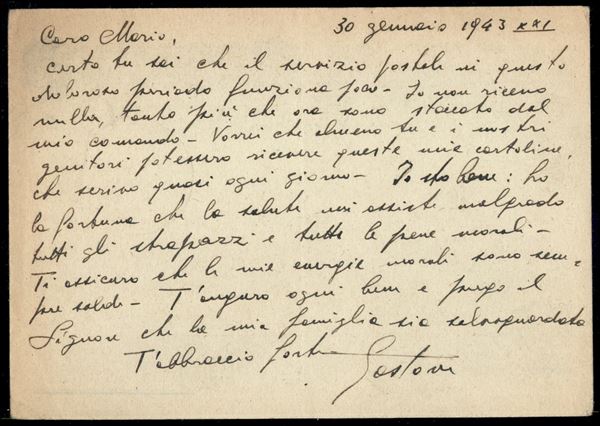 30 gennaio 1943 XXI
Caro Mario,
certo tu sai che il servizio postale in questo
doloroso periodo funziona poco - Io non ricevo
nulla, tanto più che ora sono staccato dal
mio comando - Vorrei che almeno tu e i nostri
genitori potessero ricevere queste mie cartoline,
che scrivo quasi ogni giorno - Io sto bene: ho
la fortuna che la salute mi assiste malgrado
tutti gli strapazzi e tutte le pene morali -
Ti assicuro che le mie energie morali sono sem=
pre salde - T'auguro ogni bene e prego il
Signore che la mia famiglia sia salvaguardata
T'abbraccio forte
Gastone